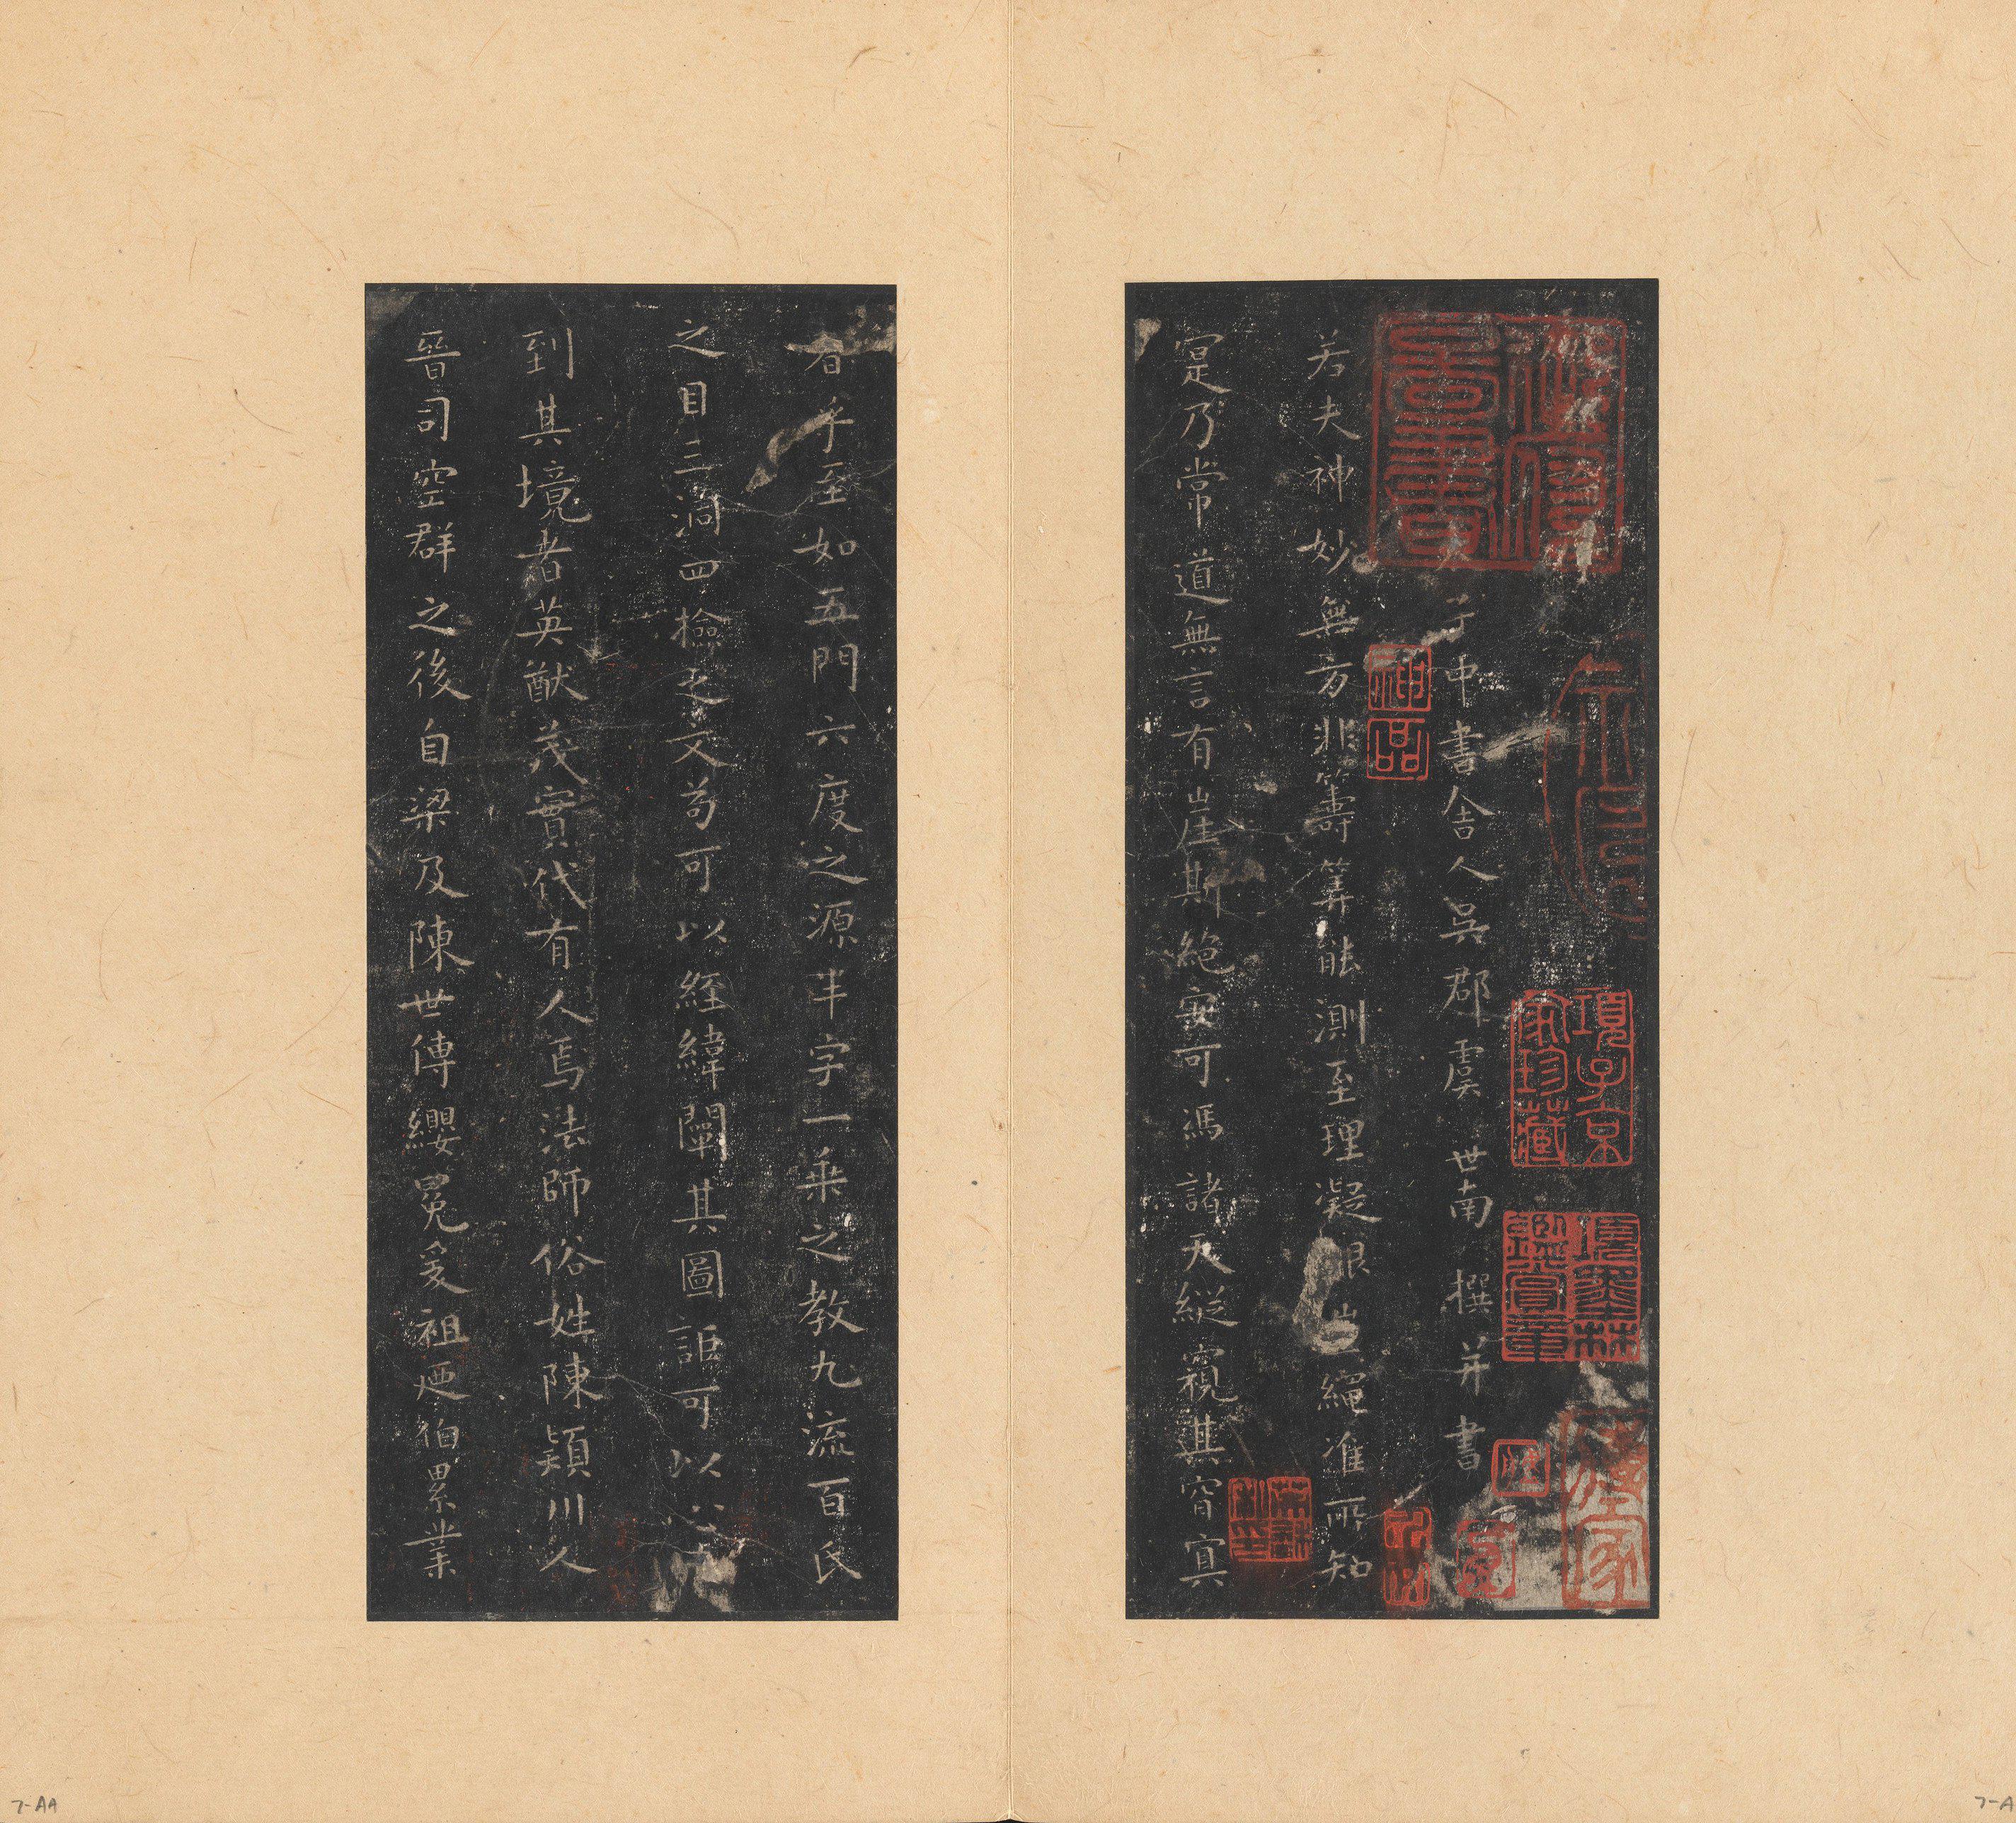 子中書舍人吳郡虞世南撰并書
若夫神妙無方非籌筭能測至理凝邈豈繩准所知
寔乃常道無言有崖斯絕安可馮諸天縱窺其窅冥
者乎至如五門六度之源半字一乘之教九流百氏
之目三洞四檢之文苟可以經緯闡其圖詎可以心
到其境者英猷茂實代有人焉法師俗姓陳潁川人
晉司空群之後自梁及陳世傳纓冕爰祖迺伯累業
神品
項子京家珍藏
項墨林鑑賞章
7-AA
7-A